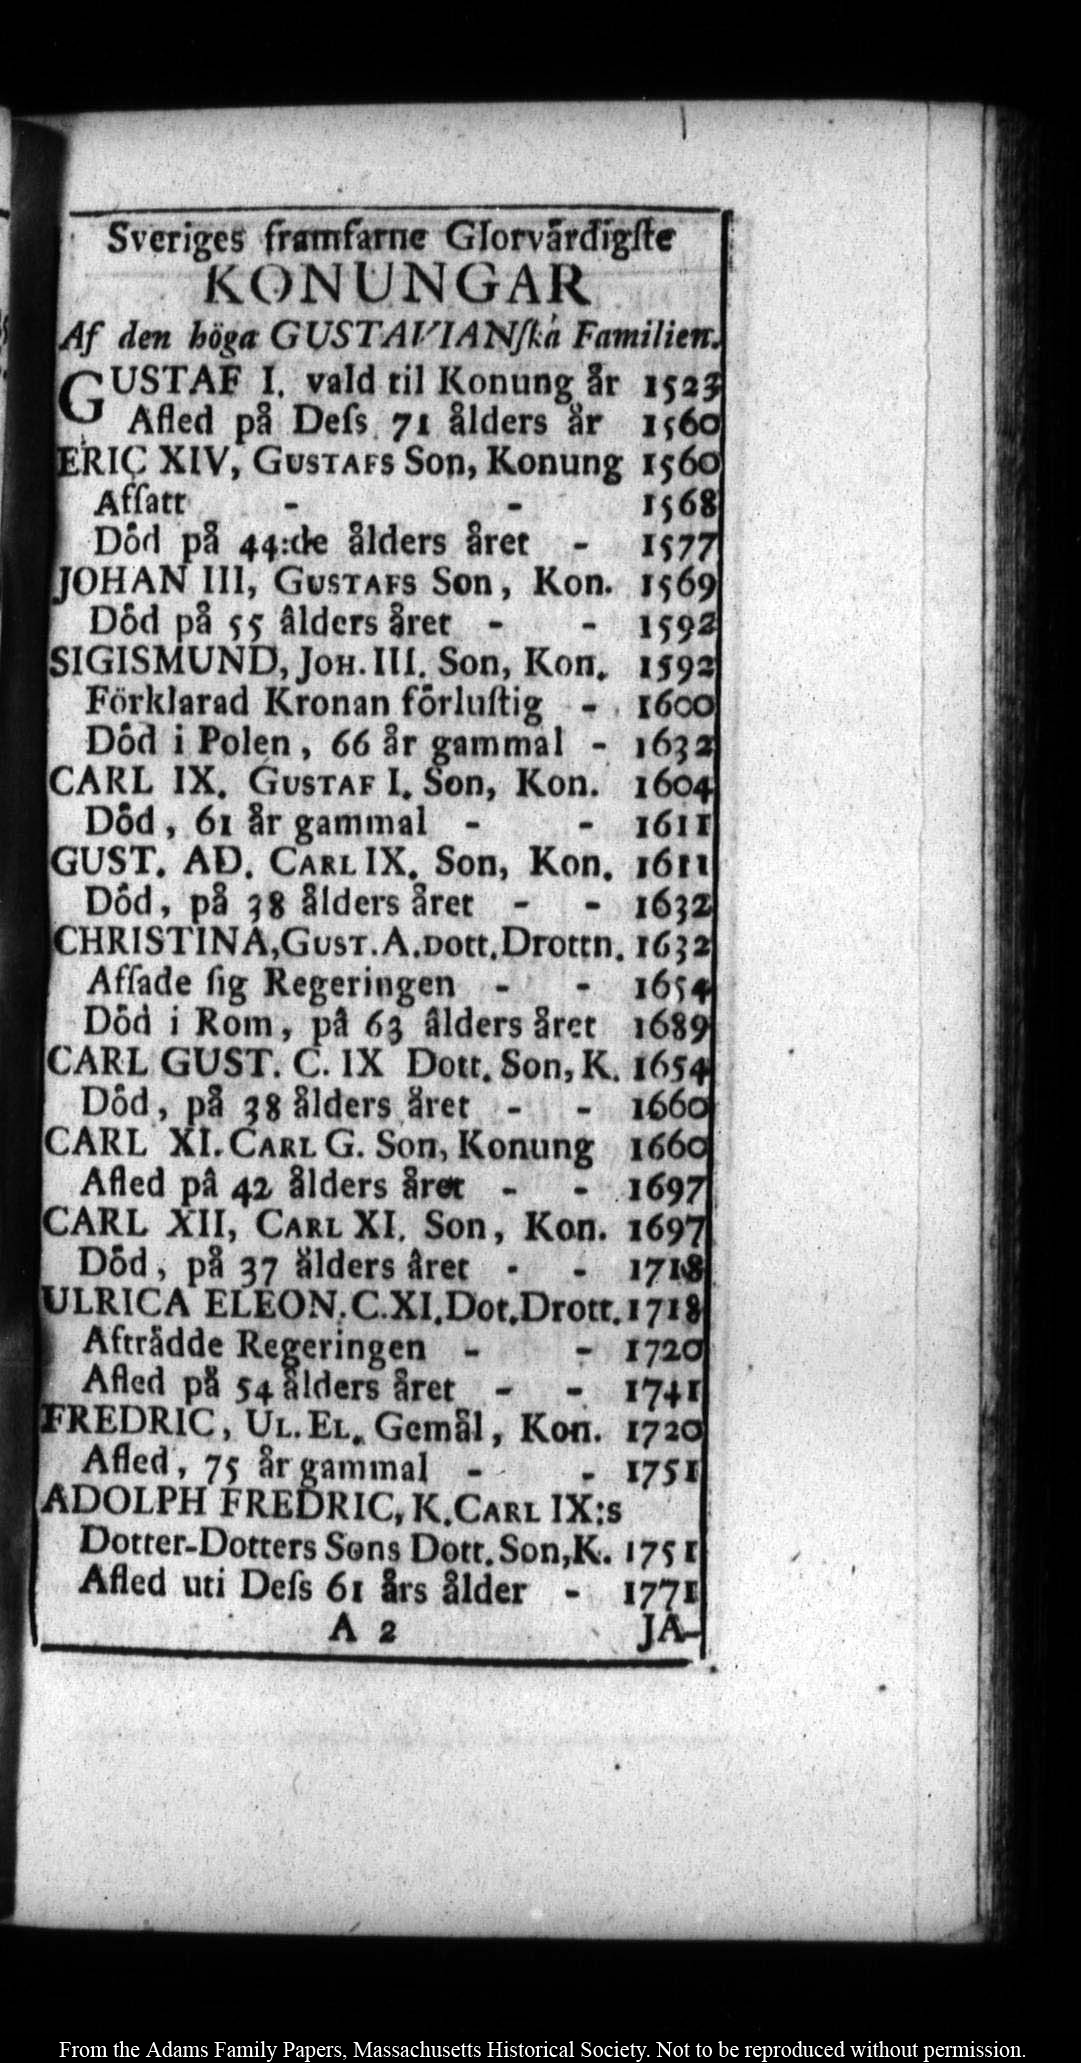 Sveriges framfarne Glorvärdigſte
KONUNGAR
Af den höga GUSTAVIANſka Familien.
GUSTAF I. vald til Konung år 1523
Afled på Deſs 71 ålders år 1560
ERIC XIV, GUSTAFS Son, Konung 1560
Affatt - - 1568
Död på 44:de ålders året - 1577
JOHAN III, GUSTAFS Son, Kon. 1569
Död på 55 ålders året - - 1592
SIGISMUND, JOH. III. Son, Kon. 1592
Förklarad Kronan förluſtig - 1600
Död i Polen, 66 år gammal - 1632
CARL IX. GUSTAF I. Son, Kon. 1604
Död, 61 år gammal - - 1611
GUST. AD. CARL IX. Son, Kon. 1611
Död, på 38 ålders året - - 1632
CHRISTINA, GUST. A. DOtt. Drottn. 1632
Afſade ſig Regeringen - - 1654
Död i Rom, på 63 ålders året 1689
CARL GUST. C. IX Dott. Son, K. 1654
Död, på 38 ålders året - - 1660
CARL XI. CARL G. Son, Konung 1660
Afled på 42 ålders året - - 1697
CARL XII, CARL XI. Son, Kon. 1697
Död, på 37 ålders året - - 1718
ULRICA ELEON. C. XI. Dot. Drott. 1718
Afträdde Regeringen - - 1720
Afled på 54 ålders året - - 1741
FREDRIC, UL. EL. Gemål, Kon. 1720
Afled, 75 år gammal - - 1751
ADOLPH FREDRIC, K. CARL IX:s
Dotter-Dotters Sons Dott. Son, K. 1751
Afled uti Deſs 61 års ålder - 1771
A 2 JA-
From the Adams Family Papers, Massachusetts Historical Society. Not to be reproduced without permission.